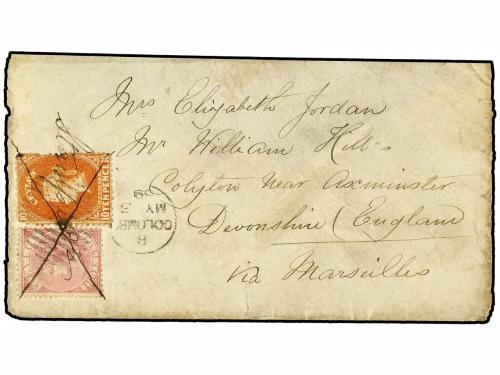 Mrs Elizabeth Jordan
Mr William Hill's
Colyton Near Axminster
Devonshire (England
via Marseilles
TEN PENCE
B
COLOMBO
MY 3
69